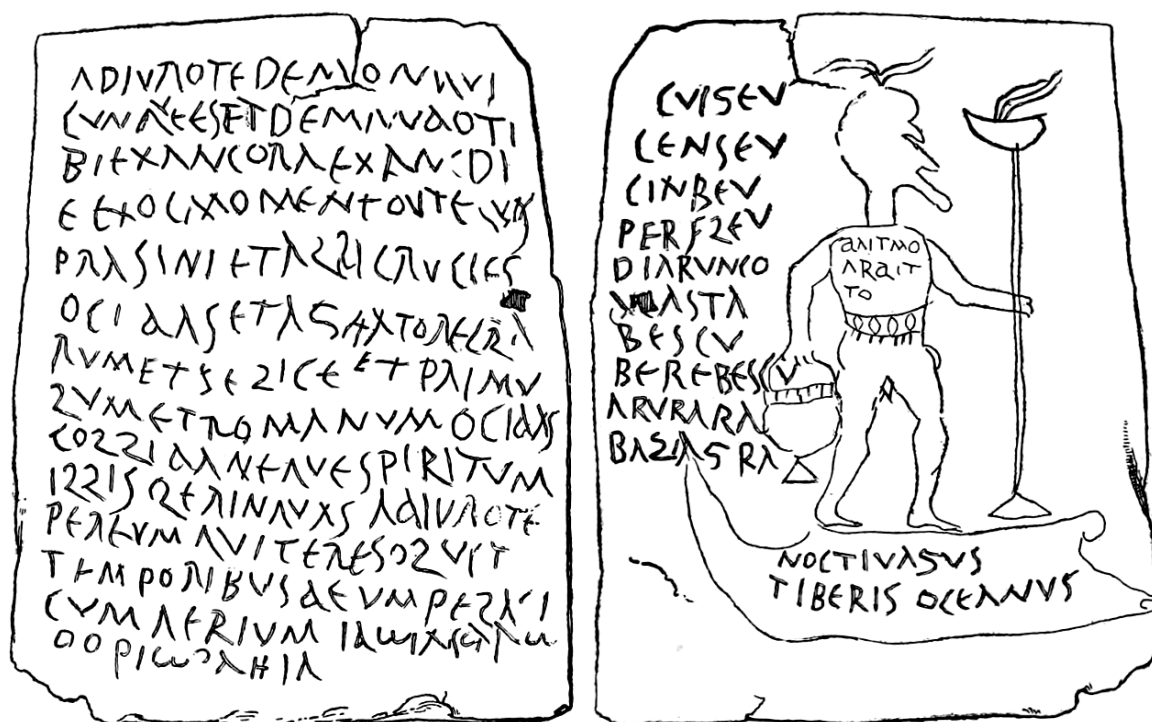 ADIVRO TE DEMON QVI
CVNQVE ES ET DEMANDO TI
BI EX ANC ORA EX ANC DI
E EX OC MOMENTO VT EQVOS
PRASINI ET ALBI CRVCIES
OCIDAS ET AGITATORE CLA
RVM ET FELICE ET PRIMV
LVM ET ROMANVM OCIDAS
COLLIDA NEQVE SPIRITVM
ILLIS LERINQVAS ADIVRO TE
PER EVM QVI TE RESOLVIT
TEMPORIBVS DEVM PELAGI
CVM AERIVM ΙΑω
CVIGEV
CENSEV
CINBEV
PERFLEV
DIARVNCO
DEASTA
BESCV
BEREBESCV
ARVRARA
BAZAGRA
ANTMO
ARAIT
TO
NOCTIVAGVS
TIBERIS OCEANVS